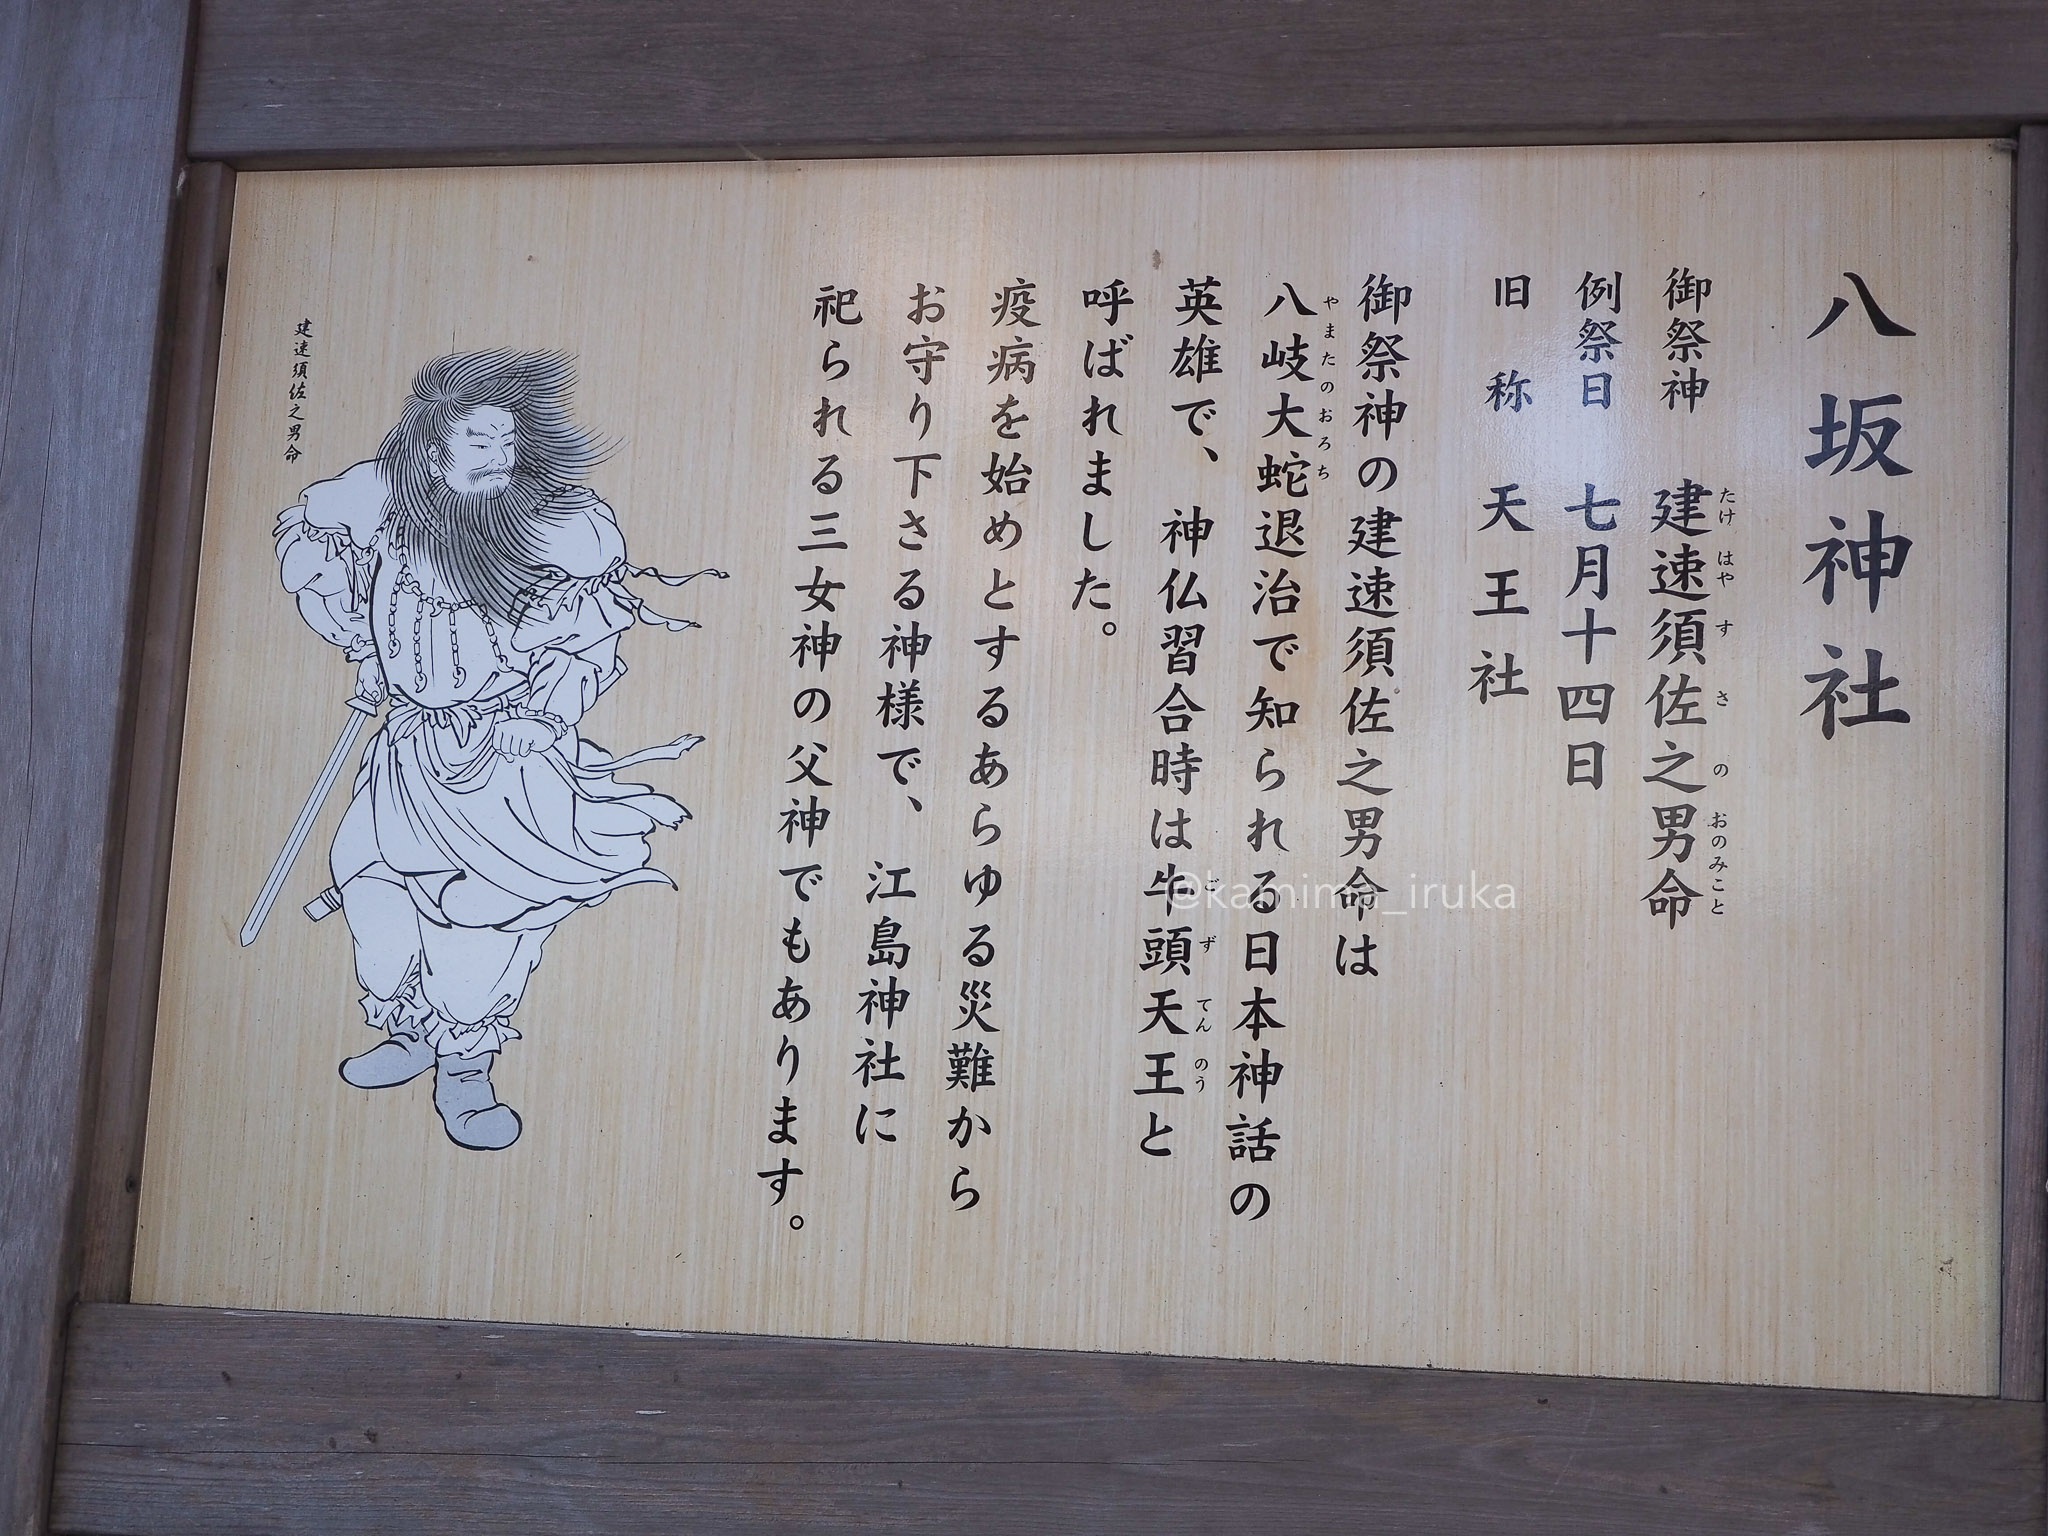 八坂神社
御祭神 建速須佐之男命
たけ はや す さ の おのみこと
例祭日 七月十四日
旧称 天王社
御祭神の建速須佐之男命は
八岐大蛇退治で知られる日本神話の
やまたのおろち
英雄で、神仏習合時は牛頭天王と
ご ず てん のう
呼ばれました。
疫病を始めとするあらゆる災難から
お守り下さる神様で、江島神社に
祀られる三女神の父神でもあります。
建速須佐之男命
@kamima_iruka